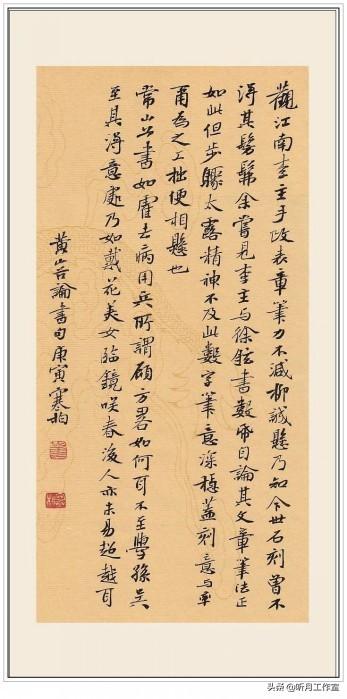 觀江南李主手改表章筆力不減柳誠懸乃知今世石刻曾不
得其髣髴余嘗見李主与徐鉉書數帋自論其文章筆法正
如此但步驟太露精神不及此數字筆意深穩蓋刻意与率
爾為之工拙便相懸也
常山公書如霍去病用兵所謂顧方畧如何耳不至學孫吳
至其得意處乃如戴花美女臨鏡咲春後人亦未易超越耳
黄山谷論書句庚寅寒柏
头条 @听月工作室